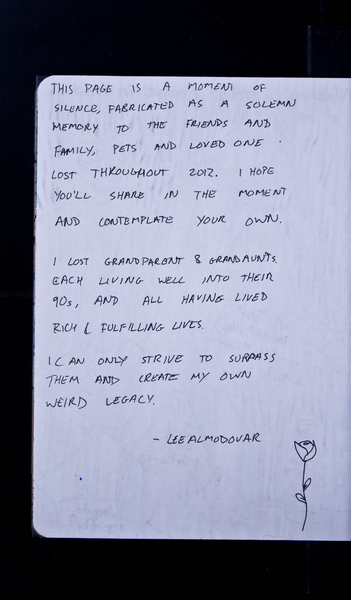 THIS PAGE IS A MOMENT OF
SILENCE, FABRICATED AS A SOLEMN
MEMORY TO THE FRIENDS AND
FAMILY, PETS AND LOVED ONE
LOST THROUGHOUT 2012. I HOPE
YOU'LL SHARE IN THE MOMENT
AND CONTEMPLATE YOUR OWN.
I LOST GRANDPARENT & GRANDAUNTS.
EACH LIVING WELL INTO THEIR
90s, AND ALL HAVING LIVED
RICH & FULFILLING LIVES.
I CAN ONLY STRIVE TO SURPASS
THEM AND CREATE MY OWN
WEIRD LEGACY.
- LEE ALMODOVAR